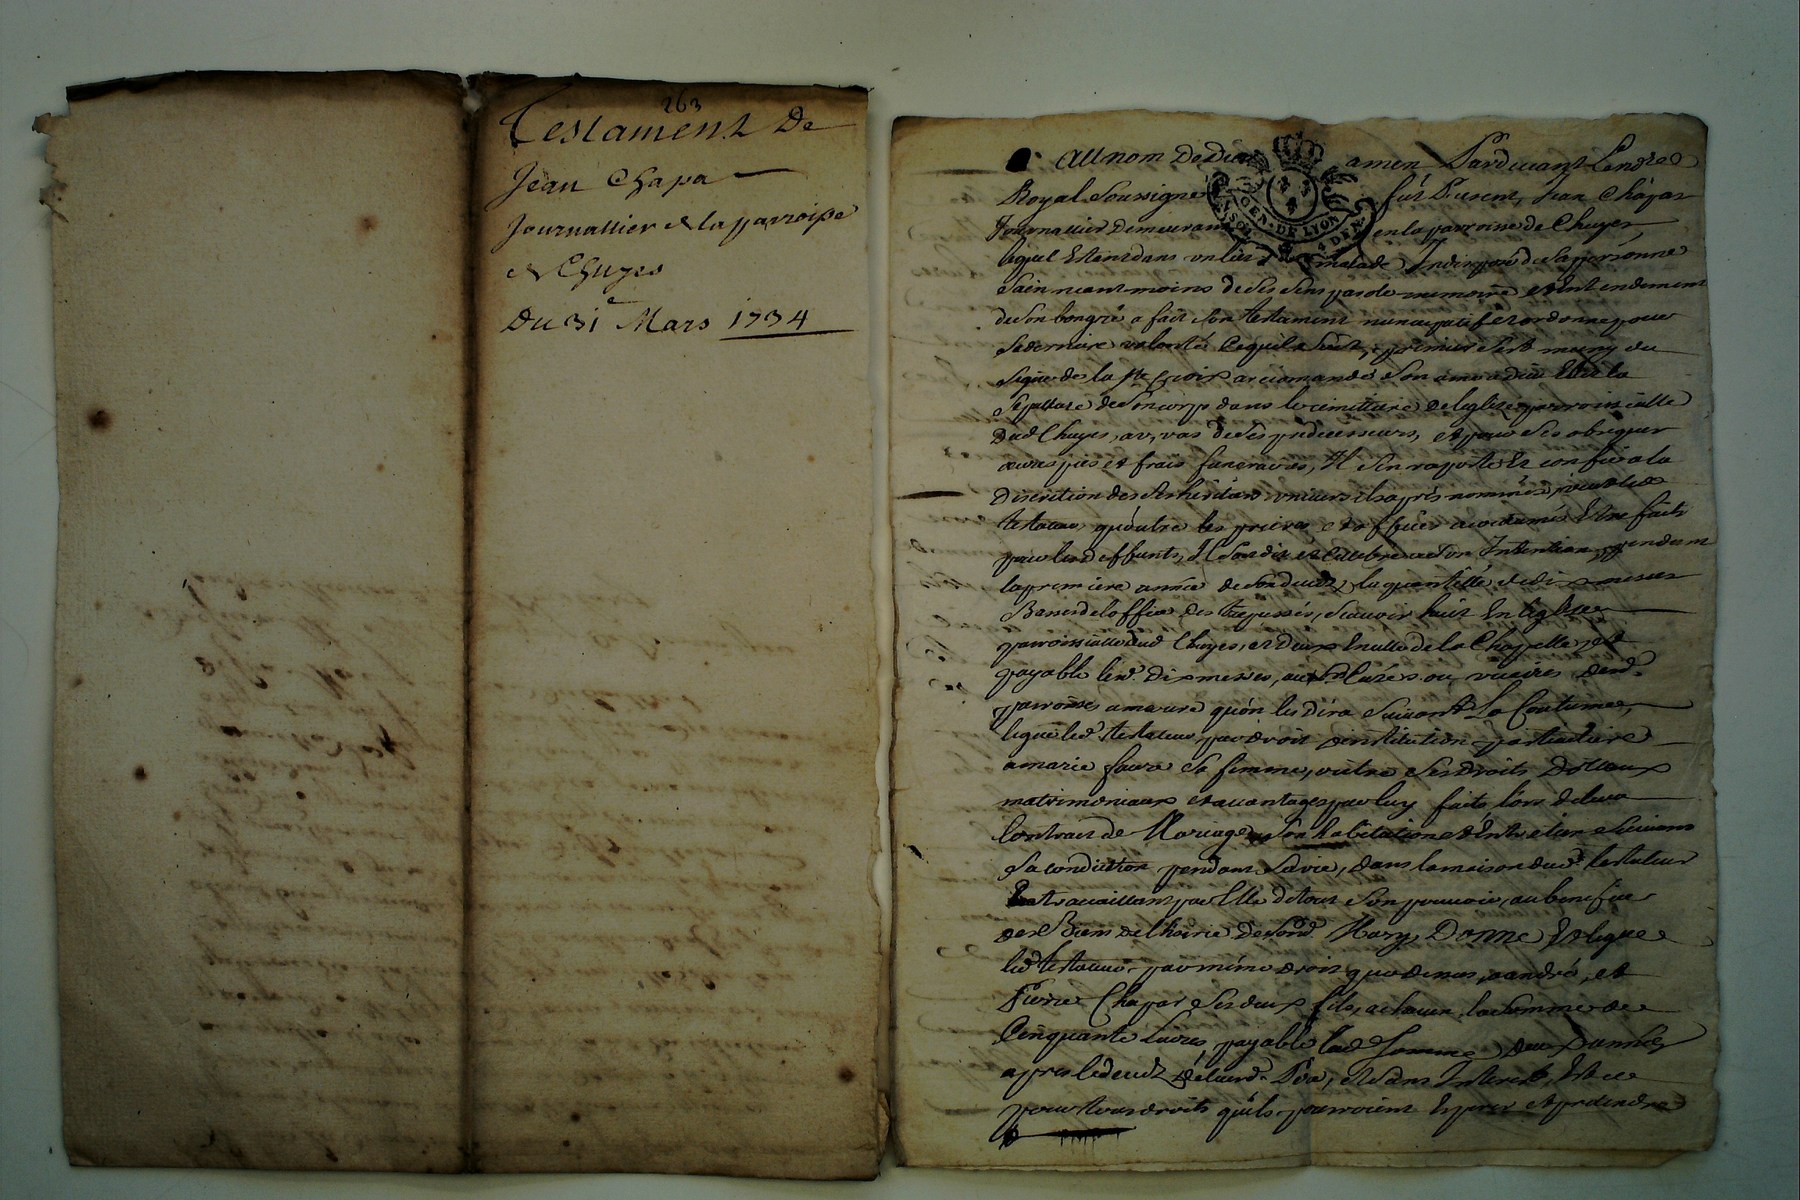 263
Testament De
Jean Chapa
Journallier de la parroisse
de Chuyes
Du 31e Mars 1734
Au nom De Dieu amen Pardevant Le no.re
Royal Soussigné fut Present, Jean Chapar
Journallier demeurant en la parroisse de Chuyes
lequel Estant dans un lit malade Indisposé de sa personne
Sain neantmoins de Ses Sens parole memoire et Entendement
de Son bon gré a fait Son testament nuncupatif et ordonnance pour
Sa derniere volonté Ce quil Suit, premier S'est muny du
Signe de la Ste Croix a recomandé Son ame a Dieu Eslit la
Sepulture de Son corps dans le cimittiere de leglize parroissialle
dud Chuyes, au vas de Ses predecesseurs, et pour Ses obseques
œuvres pies et frais funeraires, Il S'en raporte Et confie a la
Discretion de Ses heritiers univers.els après nommés, veut led
testateur, qu'outre les prieres et offices accoutumés Etre faits
pour les deffunts, Il Soit dit et Cellebré a Son Intention, pendant
la premiere année de Son deces, la quantité de dix messes
Basses de loffice des trepassés, Scavoir huit En leglise
parroissialle dud Chuyes, et deux En celle de la Chapelle,
payable lesd. dix messes, aux Srs Curés ou vicaires desd.
parroisses a mesure qu'on les dira Suivant La Coutume,
legue led testateur, par droit d'institution particuliere
a marie faure Sa femme, outre Ses droits Dottaux
matrimoniaux et avantages par luy faits lors de leur
Contract de Mariage, Son habitation et Entretien Suivant
Sa condition pendant Sa vie, dans la maison dud testateur
En travaillant par Elle de tout Son pouvoir, au benefice
des Biens de l'hoirie de Sond Mary, Donne Et legue
led testateur, par même droit que dessus, a andré, et
Pierre Chapar Ses deux fils, a chacun la Somme de
Cinquante livres, payable lad Somme, deux années
après le deces de leurd. Pere, et Sans Interest, Et ce
pour tous droits qu'ils pourroient Esperer et pretendre
GEN. DE LYON
4 DEN.